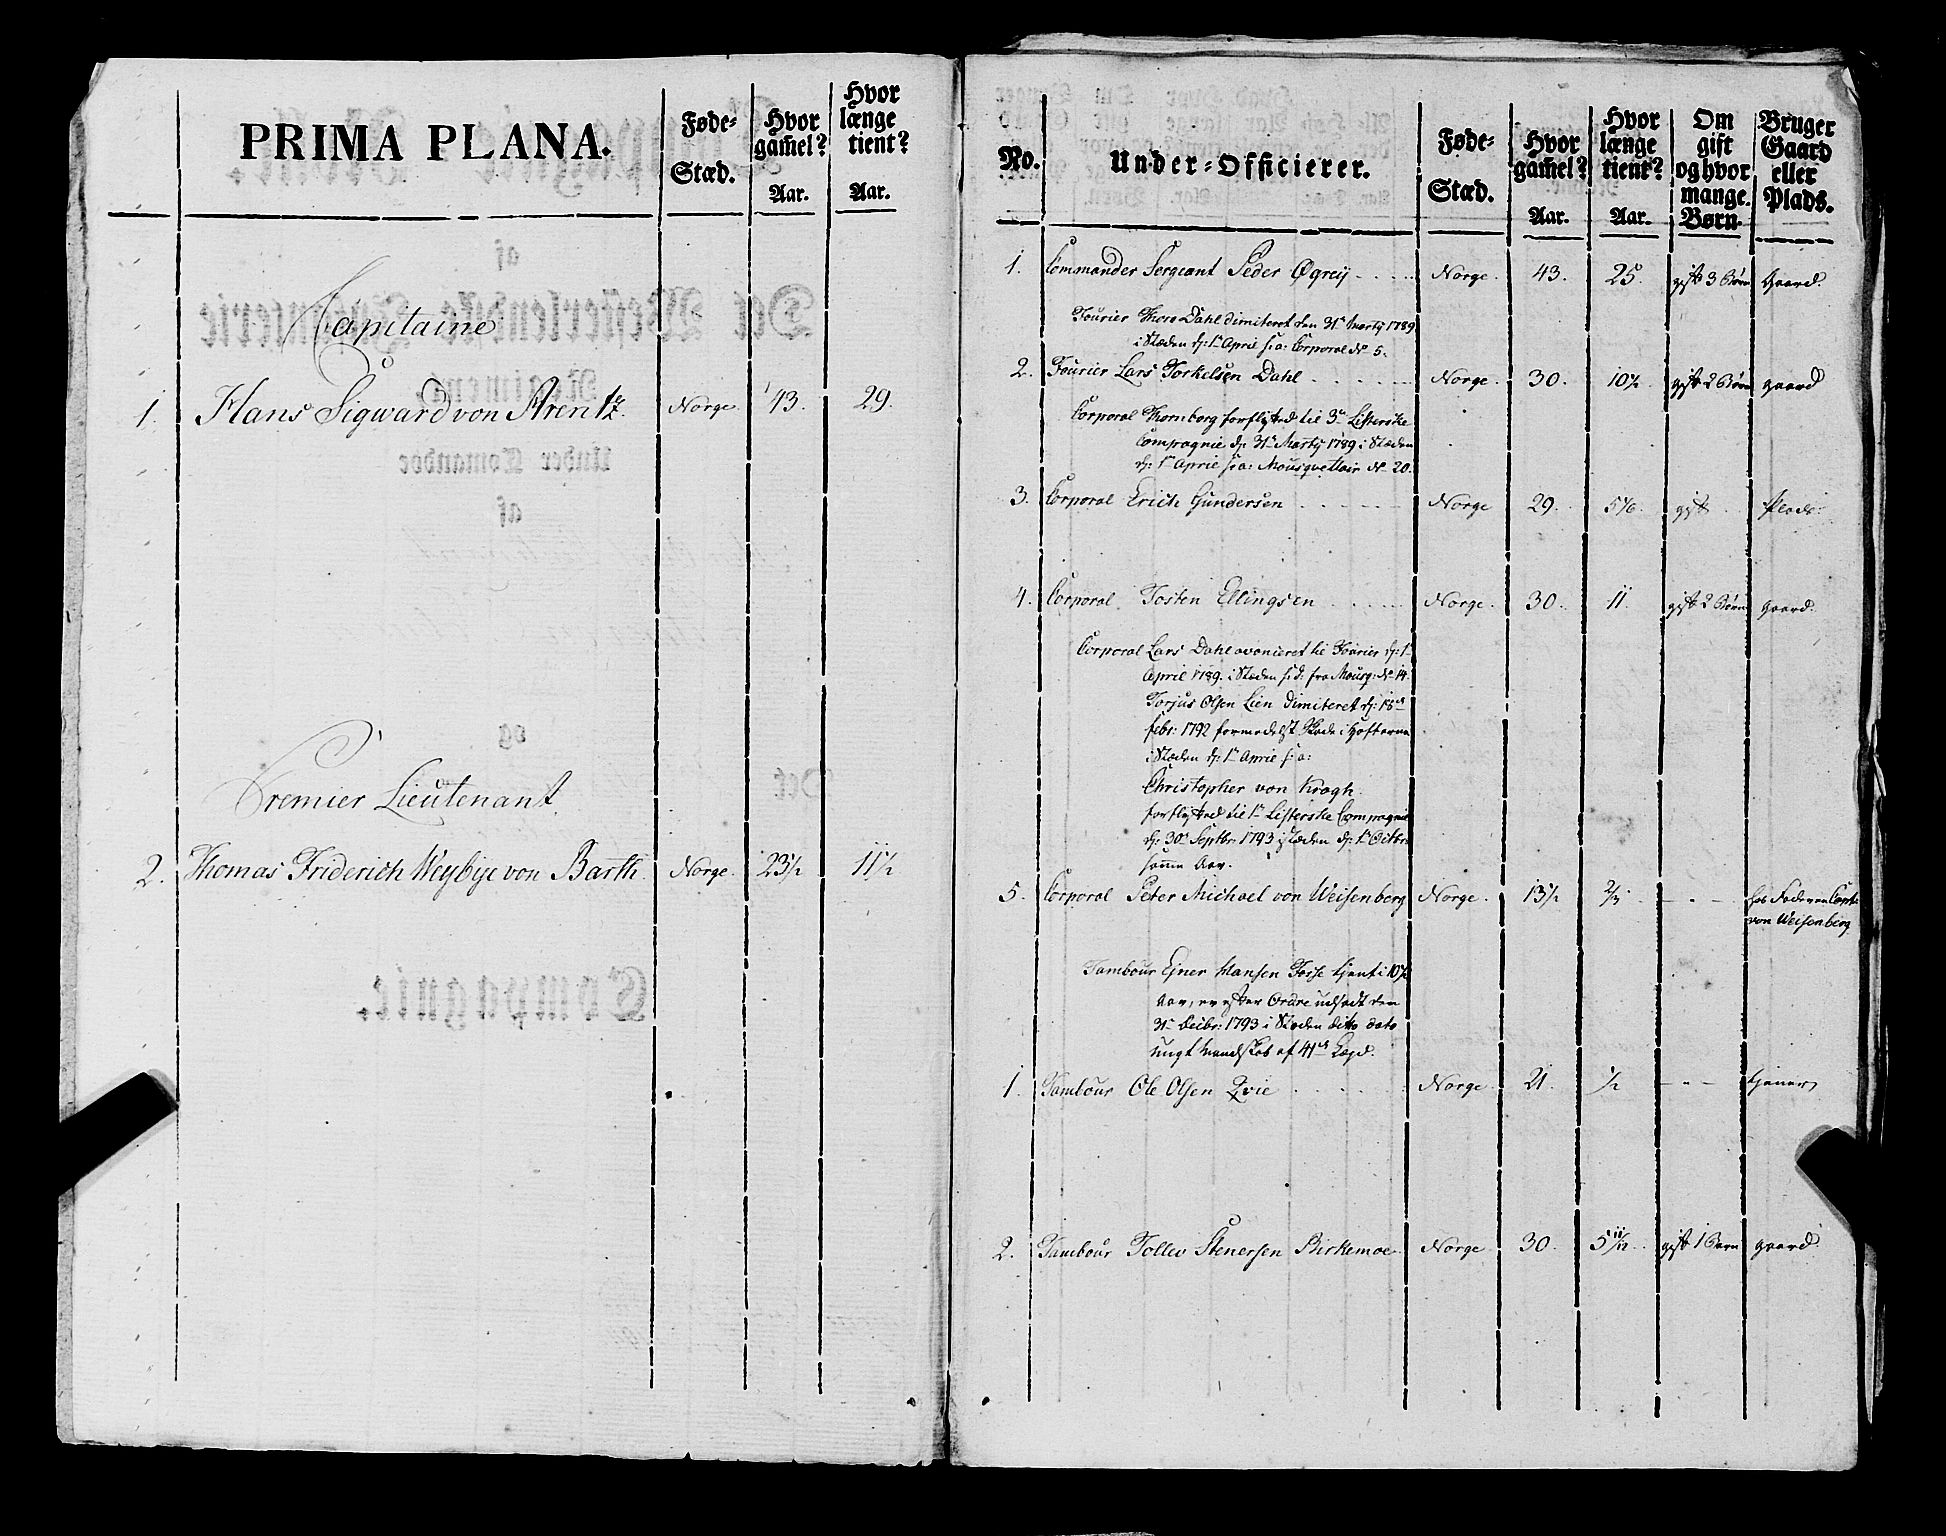 PRIMA PLANA.
Føde-
Stæd.
Hvor
gam̄el?
Aar.
Hvor
længe
tient?
Aar.
Capitaine
1. Hans Sigward von Arentz. Norge. 43. 29.
Premier Lieutenant
2. Thomas Friderich Weybye von Barth. Norge. 23½ 11½
No.
Under-Officierer.
Føde-
Stæd.
Hvor
gam̄el?
Aar.
Hvor
længe
tient?
Aar.
Om
gift
og hvor
mange
Børn.
Bruger
Gaard
eller
Plads.
1. Commander Sergeant Peder Øgrey Norge. 43. 25. gift 3 Børn Gaard.
Fourier Thore Dahl dimiteret den 31te Marty 1789
i Stæden d: 1te April s: a: Corporal No 5.
2. Fourier Lars Torkelsen Dahl Norge 30. 10½ gift 2 Børn gaard
Corporal Thornborg forflytted til 3die Listerske
Compagnie d: 31te Marty 1789 i Stæden
d: 1te April s: a: Mousquettair No 20.
3. Corporal Erich Gundersen Norge 29. 5 1/6 gift Plads.
4. Corporal Tosten Ellingsen Norge. 30. 11. gift 2 Børn gaard.
Corporal Lars Dahl avanceret til Fourier d: 1te
April 1789. i Stæden s: d: fra Mousq: No 14
Torjus Olsen Lien dimiteret d: 18de
febr: 1792 formedelst Skade i Hofterne
i Stæden d: 1te April s: a:
Christopher von Krogh
forflytted til 1te Listerske Compagnie
d: 30te Septbr: 1793 i Stæden d: 1te Octbr:
samme Aar.
5. Corporal Peter Michael von Weisenberg Norge. 13½ 2/3 - " - hos Faderen Capt:
von Weisenberg
Tambour Ejner Hansen Fosse tjent i 10½
Aar, er efter Ordre udsadt den
31te Decbr: 1793 i Stæden ditto dato
ungt Mandskab af 41de Lægd.
1. Tambour Ole Olsen Qvie Norge 21. ½ - " - tjener
2. Tambour Tollev Stenersen Birkemoe Norge 30. 5 11/12. gift 1 Barn gaard.